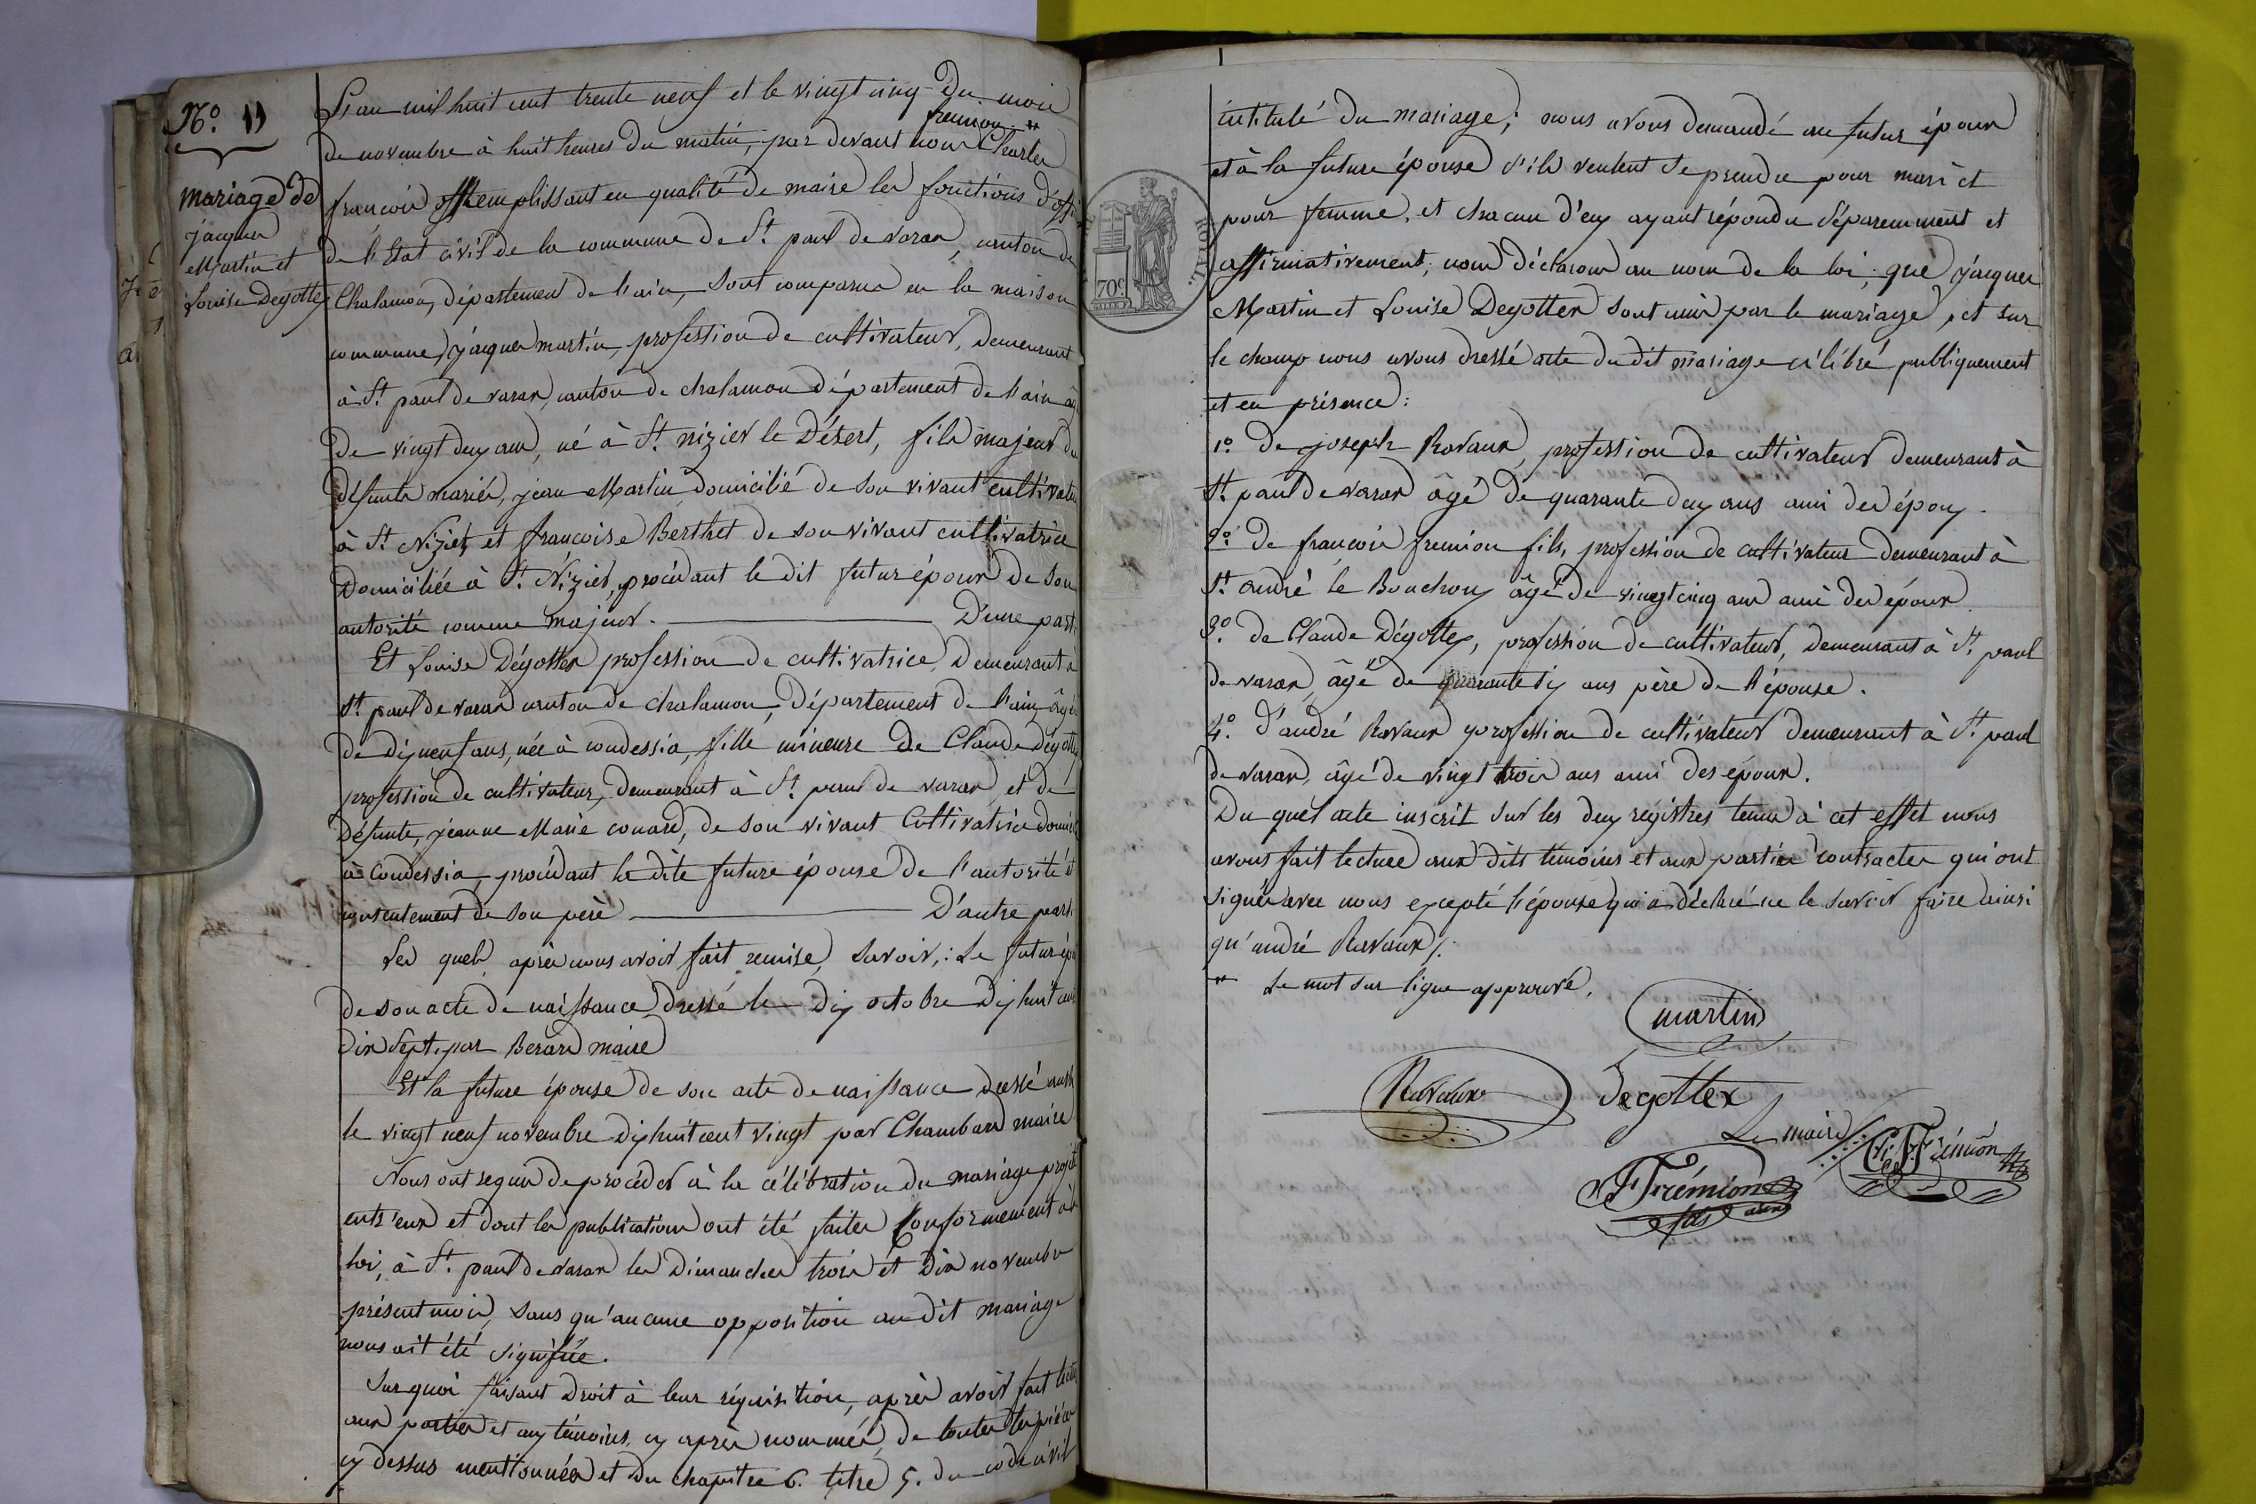 No. 11
mariage de
jacques
Martin et
Louise Degottex
L'an mil huit cent trente neuf et le vingt cinq du mois
fremion *
de novembre à huit heures du matin, par devant nous Charles
françois remplissant en qualité de maire les fonctions d'offi
de l'Etat civil de la commune de St. paul de varax, canton de
Chalamon, département de l'ain, sont comparus en la maison
commune, jacques martin, profession de cultivateur, demeurant
à St. paul de varax, canton de chalamon département de l'ain âg
de vingt deux ans, né à St. nizier le Désert, fils majeur de
défunts mariés, jean Martin domicilié de son vivant cultivateu
à St Nizier et francoise Berthet de son vivant cultivatrice
Domiciliée à St. Nizier, procédant le dit futur époux de son
autorité comme majeur. D'une part.
Et Louise Dégottex profession de cultivatrice, Demeurant à
St. paul de varax canton de chalamon, Département de l'ain, âgée
de dix neuf ans, née à condessia, fille mineure de Claude Dégottex
profession de cultivateur, demeurant à St. paul de varax, et de
Défunte, jeanne Marie couard, de son vivant Cultivatrice domici
à Condessia, procédant la dite future épouse de l'autorité et
consentement de son père D'autre part.
Les quels après nous avoir fait remise, savoir, : Le futur épo
de son acte de naissance dressé le dix octobre dix huit cent
dix sept, par Berard maire
Et la future épouse de son acte de naissance dressé aussi
le vingt neuf novembre dix huit cent vingt par Chambard maire
Nous ont requis de procéder à la célébration du mariage projeté
entr'eux et dont les publications ont été faites Conformement à la
loi, à St. paul de varax les Dimanches trois et Dix novembre
présent mois, sans qu'aucune opposition au dit mariage
nous ait été signifiée.
Sur quoi faisant droit à leur réquisition, après avoir fait lectu
aux parties et aux témoins, cy après nommés, de toutes les pièces
cy dessus mentionnées et du chapitre 6. titre 5. du code civil
intitulé du mariage; nous avons demandé au futur époux
et à la future épouse s'ils veulent se prendre pour mari et
pour femme, et chacun d'eux ayant répondu séparemment et
affirmativement; nous déclarons au nom de la loi, que jacques
Martin et Louise Degottex sont unis par le mariage, et sur
le champ nous avons dressé acte du dit mariage célébré publiquement
et en présence:
1o. De joseph Ravaux, profession de cultivateur demeurant à
St. paul de varax âgé de quarante deux ans ami des époux.
2o. De francois fremion fils, profession de cultivateur demeurant à
St. andré le Bouchoux âgé de vingt cinq ans ami des époux.
3o. de Claude Dégottex, profession de cultivateur, demeurant à St. paul
de varax, âgé de quarante six ans père de l'épouse.
4o. D'andré Ravaux profession de cultivateur demeurant à St. paul
de varax, âgé de vingt trois ans ami des époux.
Du quel acte inscrit sur les deux régistres tenus à cet effet nous
avons fait lecture aux dits témoins et aux parties contractes qui ont
signés avec nous excepté l'épouse qui a déclaré ne le savoir faire ainsi
qu'andré Ravaux /.
* Le mot sur ligne approuvé.
70c
ROYAL.
martin
Ravaux
Degottex
Le maire
Frémion
Frémion
fils